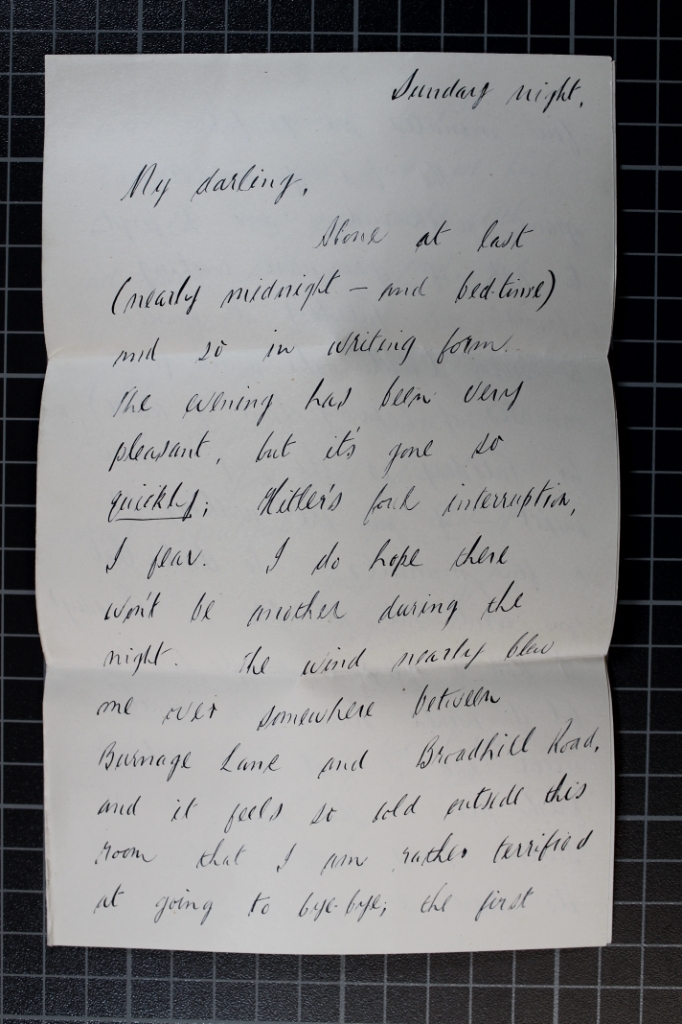 Sunday night.
My darling,
Alone at last
(nearly midnight – and bed-time)
and so in writing form.
The evening has been very
pleasant, but it's gone so
quickly; Hitler's foul interruption,
I fear. I do hope there
won't be another during the
night. The wind nearly blew
me over somewhere between
Burnage Lane and Broadhill Road,
and it feels so cold outside this
room that I am rather terrified
at going to bye-bye; the first